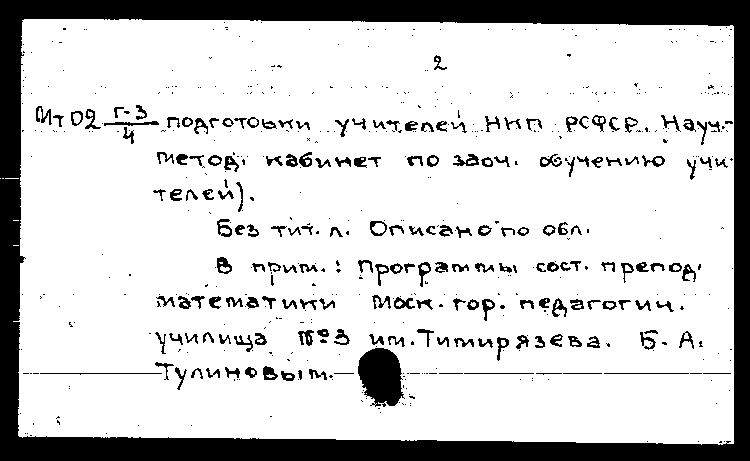 2
Мт02 Г-3/4 подготовки учителей НКП РСФСР. Науч.-
метод. кабинет по заоч. обучению учи-
телей).
Без тит. л. Описано по обл.
В прим.: Программы сост. препод.
математики Моск. гор. педагогич.
училища №3 им. Тимирязева. Б. А.
Тулиновым.